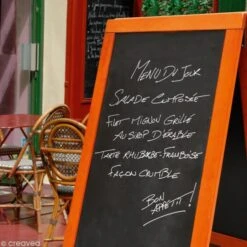 MENU DU JOUR
SALADE COMPOSÉE
FILET MIGNON GRILLÉ
AU SIROP D'ÉRABLE
TARTE RHUBARBE-FRAMBOISE
FAÇON CRUMBLE
BON
APPÉTIT!
© creavea